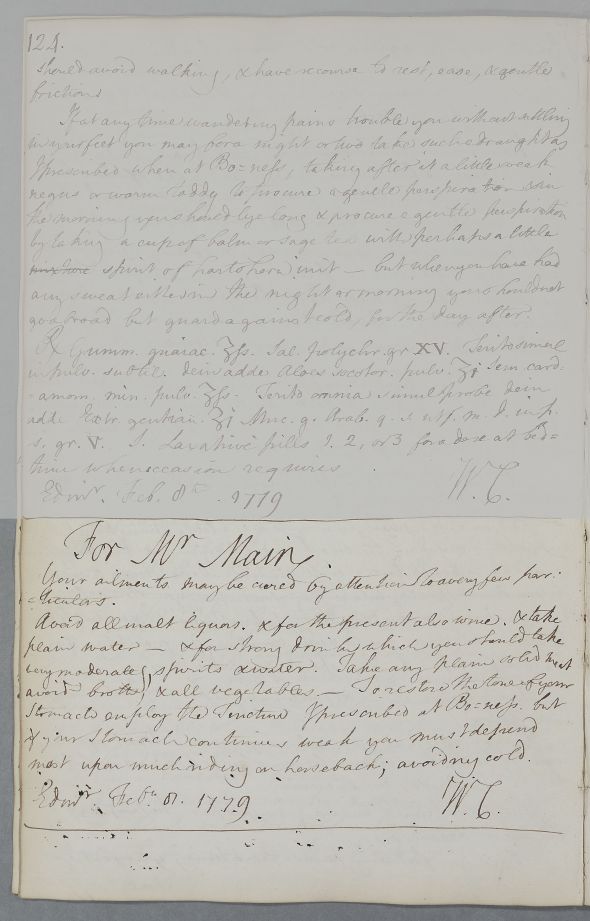 124.
should avoid walking, & have recourse to rest, ease, & gentle
frictions
If at any time wandering pains trouble you without settling
in your feet you may for a night or two take such a draught as
I prescribed when at Bo=ness, taking after it a little weak
negus or warm toddy to procure a gentle perspiration & in
the morning you should lye long & procure a gentle perspiration
by taking a cup of balm or sage tea with perhaps a little
spirit of hartshorn in it — but when you have had
any sweat either in the night or morning you should not
go abroad but guard against cold, for the day after.
℞ Gumm. guaiac. ʒſs. Sal. polychr. gr XV. Terito simul
in pulv. subtil. dein adde Aloes socotor. pulv. ʒi Sem card=
=amom. min. pulv. ʒſs. Terito omnia simul probe dein
adde Extr. gentian. ʒi Muc. g. Arab. q. s. ut f. m. d. in p.
s. gr. V. S. Laxative pills 1. 2, or 3 for a dose at bed=
time when occasion requires
Edinr. Feb. 8th. 1779 W. C.
For Mr Main.
Your ailments may be cured by attention to a very few par=
=ticulars.
Avoid all malt liquors. & for the present also wine. & take
plain water — & for strong drink, which you should take
very moderately, spirits & water. Take any plain solid meat
avoid broths, & all vegetables. — To restore the tone of your
stomach employ the Tincture I prescribed at Bo=ness. but
if your stomach continues weak you must depend
most upon much riding on horseback; avoiding cold.
Edinr. Feb. 8. 1779 W. C.